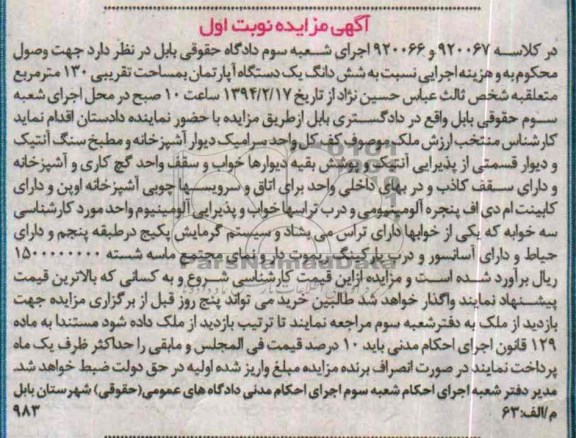 آگهی مزایده نوبت اول
در کلاسه ۹۲۰۰۶۷ و ۹۲۰۰۶۶ اجرای شعبه سوم دادگاه حقوقی بابل در نظر دارد جهت وصول
محکوم به و هزینه اجرایی نسبت به شش دانگ یک دستگاه آپارتمان بمساحت تقریبی ۱۳۰ مترمربع
متعلقبه شخص ثالث عباس حسین نژاد از تاریخ ۱۳۹۴/۲/۱۷ ساعت ۱۰ صبح در محل اجرای شعبه
سوم حقوقی بابل واقع در دادگستری بابل ازطریق مزایده با حضور نماینده دادستان اقدام نماید
کارشناس منتخب ارزش ملک موصوف کف کل واحد سرامیک دیوار آشپزخانه و مطبخ سنگ آنتیک
و دیوار قسمتی از پذیرایی آنتیک و پوشش بقیه دیوارها خواب و سقف واحد گچ کاری و آشپزخانه
و دارای سقف کاذب و در بهای داخلی واحد برای اتاق و سرویسها چوبی آشپزخانه اوپن و دارای
کابینت ام دی اف پنجره آلومینیومی و درب تراسها خواب و پذیرایی آلومینیوم واحد مورد کارشناسی
سه خوابه که یکی از خوابها دارای تراس می بشاد و سیستم گرمایش پکیج درطبقه پنجم و دارای
حیاط و دارای آسانسور و درب پارکینگ ریموت دار و نمای مجتمع ماسه شسته ۱۵۰۰۰۰۰۰۰۰
ریال برآورد شده است و مزایده ازاین قیمت کارشناسی شروع و به کسانی که بالاترین قیمت
پیشنهاد نمایند واگذار خواهد شد طالبین خرید می تواند پنج روز قبل از برگزاری مزایده جهت
بازدید از ملک به دفترشعبه سوم مراجعه نمایند تا ترتیب بازدید از ملک داده شود مستندا به ماده
۱۲۹ قانون اجرای احکام مدنی باید ۱۰ درصد قیمت فی المجلس و مابقی را حداکثر ظرف یک ماه
پرداخت نمایند در صورت انصراف برنده مزایده مبلغ واریز شده اولیه در حق دولت ضبط خواهد شد.
مدیر دفتر شعبه اجرای احکام شعبه سوم اجرای احکام مدنی دادگاه های عمومی(حقوقی) شهرستان بابل
م/الف:۶۳ ۹۸۳